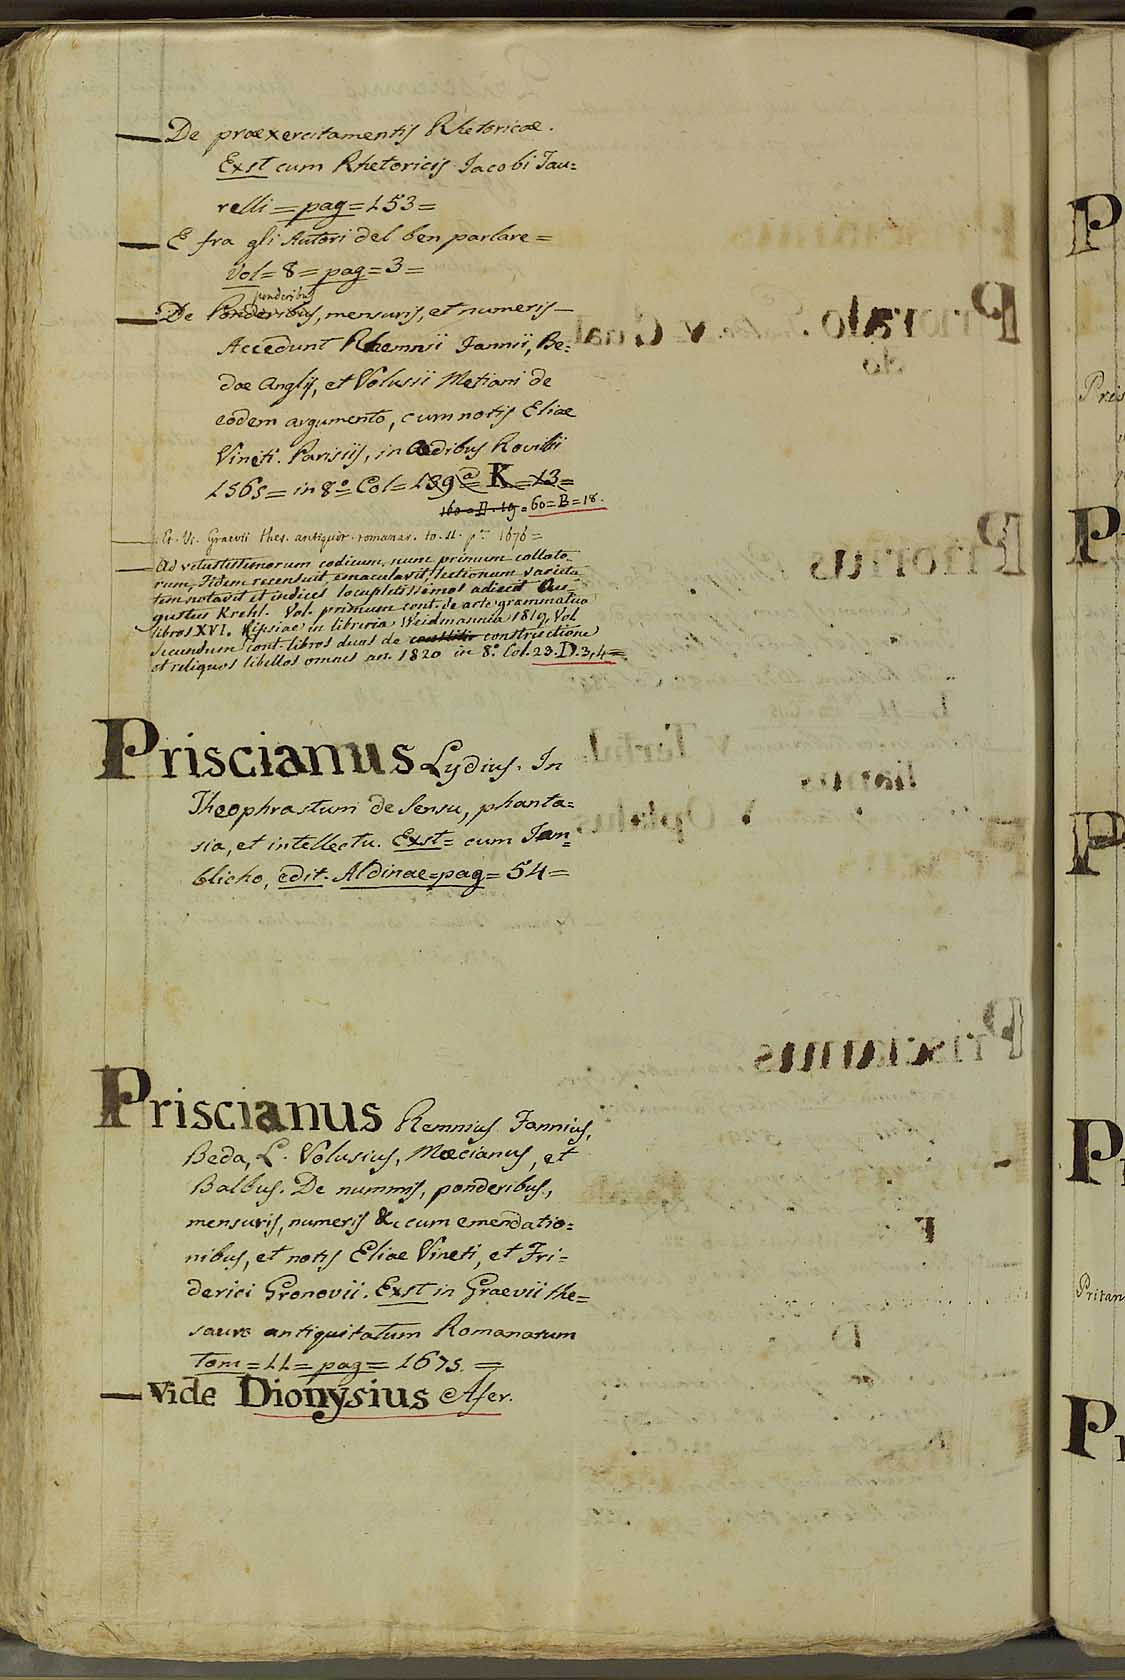 — De praexercitamentis Rhetoricae.
Exst cum Rhetoricis Jacobi Tau=
relli = pag = 153 =
— E fra gli Autori del ben parlare =
Vol = 8 = pag = 3 =
ponderibus
— De Ponderibus, mensuris, et numeris —
Accedunt Rhemnii Fannii, Be=
dae Anglis, et Volusii Metiani de
eodem argumento, cum notis Eliae
Vineti. Parisiis, in Aedibus Rovilii
1565 = in 8º = Col = 139 @ = K = 13 =
160 = D. 19 = 60 = B = 18.
— Et. Vi. Graevii thes. antiquit. romanar. to. 11. p. 1676 =
— Ad vetustissimorum codicum, nunc primum collato
rum, Fidem recensuit emaculavit lectionum varieta
tem notavit et indices locupletissimos adiecit Au=
gustus Krehl. Vol. primum cont. de arte grammatica
libros XVI. Lipsiae in libreria Weidmannia 1819, Vol
secundum cont. libros duos de constructione
et reliquos libellos omnes an. 1820 in 8º. Col. 23. D. 3,4 =
Priscianus Lydius. In
Theophrastum de Sensu, phanta=
sia, et intellectu. Exst = cum Iam=
blicho, edit. Aldinae = pag = 54 =
Priscianus Remnius Fannius,
Beda, L. Volusius, Maecianus, et
Balbus. De nummis, ponderibus,
mensuris, numeris &c cum emendatio=
nibus, et notis Eliae Vineti, et Fri=
derici Gronovii. Exst in Graevii the=
sauro antiquitatum Romanarum
Tom = 11 = pag = 1675 =
— Vide Dionysius Afer.
P
Pris
P
P
P
Pritan
P